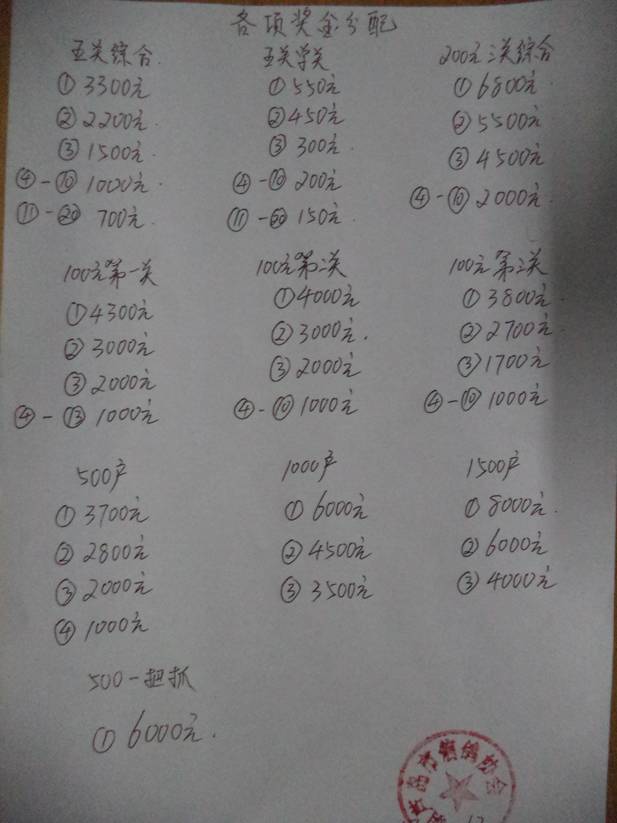 各项奖金分配
五关综合
①3300元
②2200元
③1500元
④-⑩1000元
⑪-⑳700元
五关单关
①550元
②450元
③300元
④-⑩200元
⑪-⑳150元
200元三关综合
①6800元
②5500元
③4500元
④-⑩2000元
100元第一关
①4300元
②3000元
③2000元
④-⑬1000元
100元第二关
①4000元
②3000元
③2000元
④-⑩1000元
100元第三关
①3800元
②2700元
③1700元
④-⑩1000元
500户
①3700元
②2800元
③2000元
④1000元
1000户
①6000元
②4500元
③3500元
1500户
①8000元
②6000元
③4000元
500一把抓
①6000元.
市信鸽协会